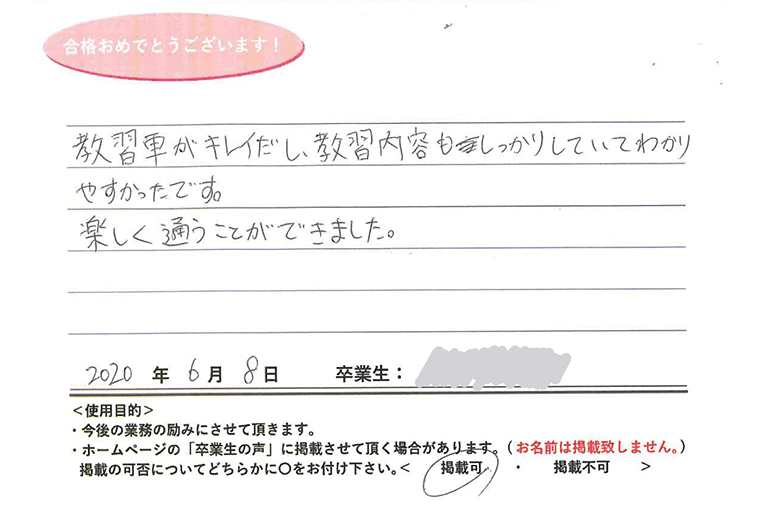 合格おめでとうございます！
教習車がキレイだし、教習内容もしっかりしていてわかり
やすかったです。
楽しく通うことができました。
2020 年 6 月 8 日 卒業生：
＜使用目的＞
・今後の業務の励みにさせて頂きます。
・ホームページの「卒業生の声」に掲載させて頂く場合があります。（お名前は掲載致しません。）
掲載の可否についてどちらかに〇をお付け下さい。＜ 掲載可 ・ 掲載不可 ＞